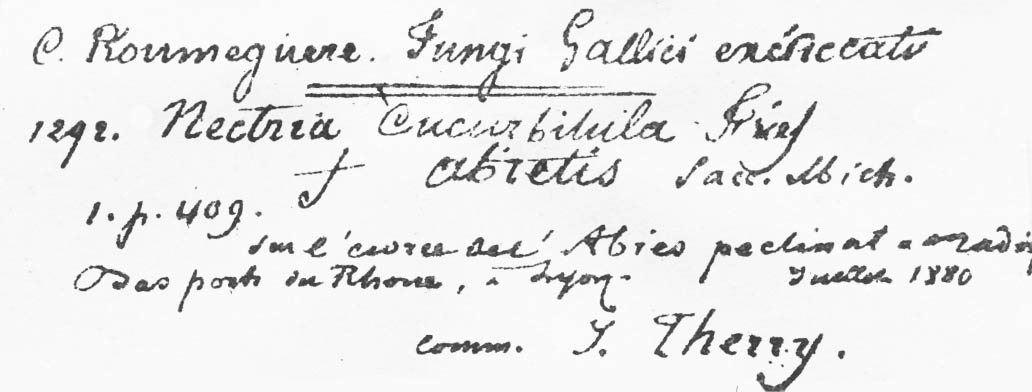 C. Roumeguere. Fungi Gallici exsiccati
1292. Nectria Cucurbitula Fries
f abietis Sacc. Mich.
1. p. 409.
sur l'écorce de l' Abies pectinat a
Bas ports du Rhone, a Lyon. Juillet 1880
comm. J. Therry.